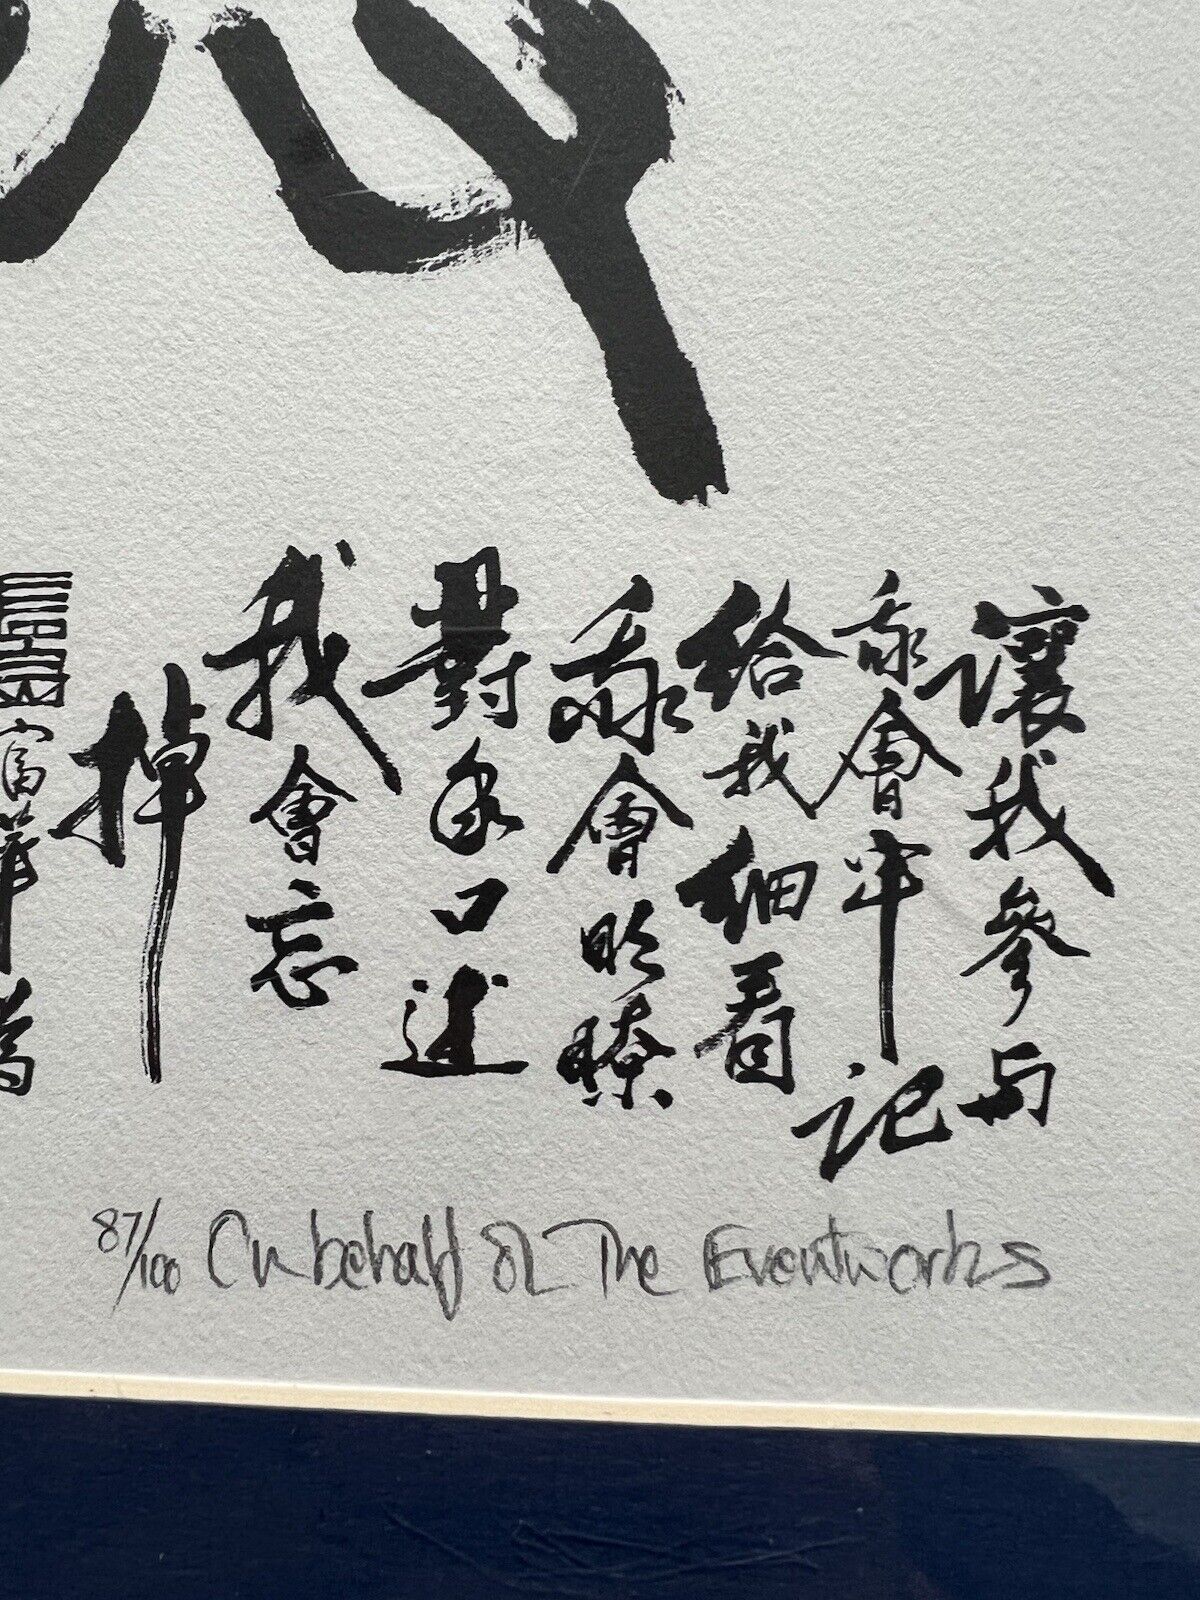 讓我參与
我會牢記
給我細看
我會明瞭
對我口述
我會忘
掉
富華為
87/100 On behalf of The Eventworks